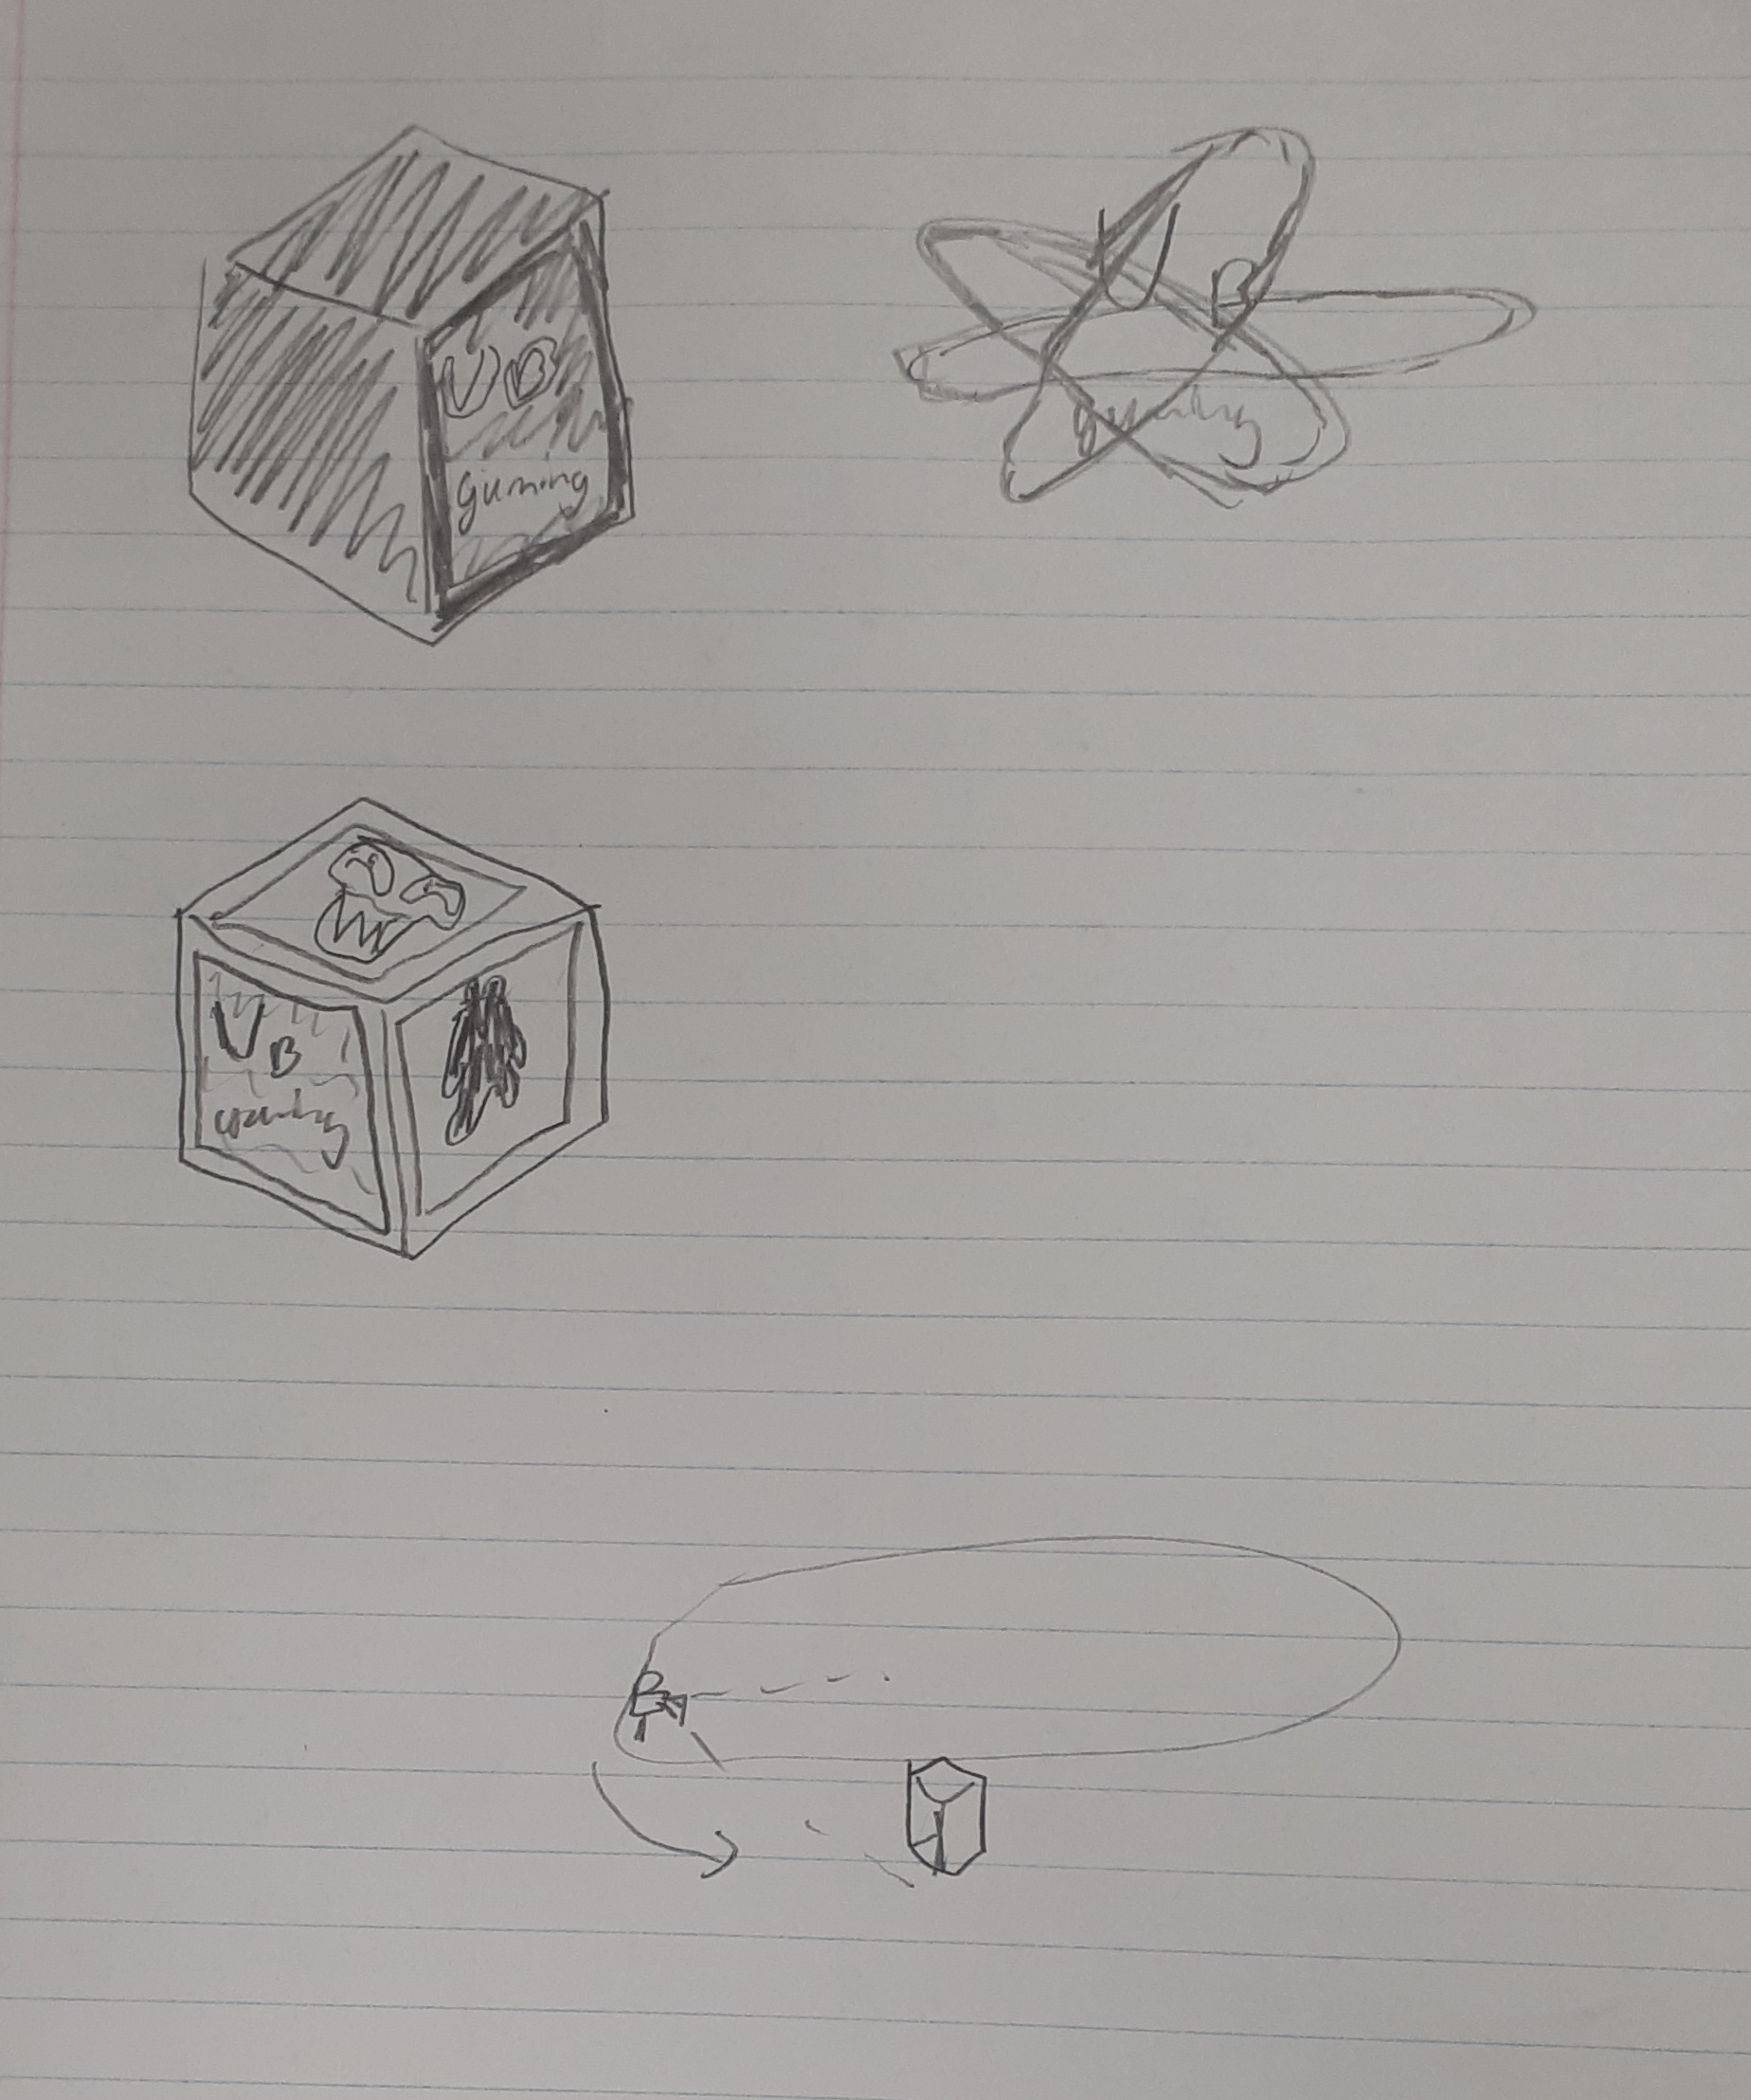 UB
gaming
U
B
gaming
U
B
gaming